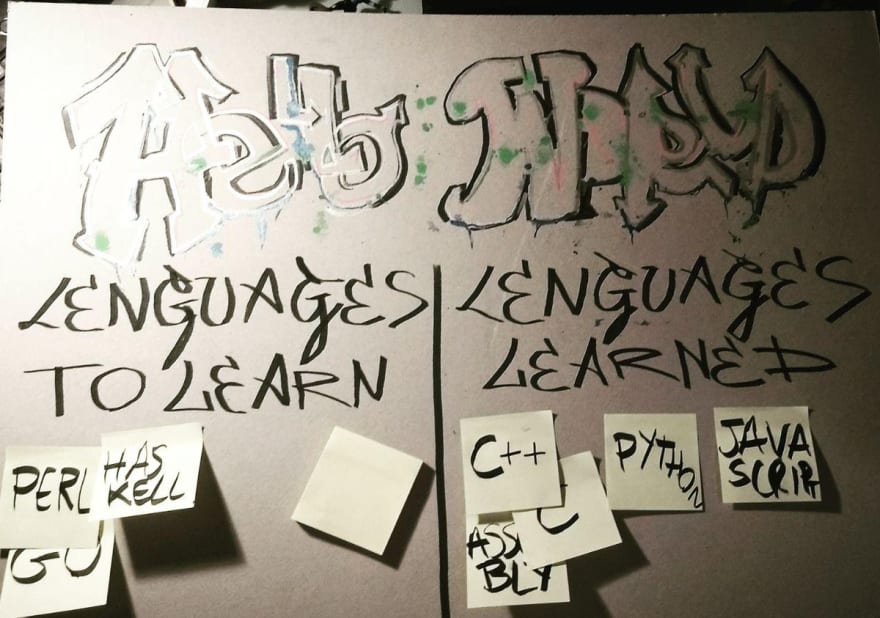 Hello World
LENGUAGES
TO LEARN
LENGUAGES
LEARNED
PERL
HAS
KELL
GO
C++
C
ASSE
BLY
PYTHON
JAVA
SCRIPT